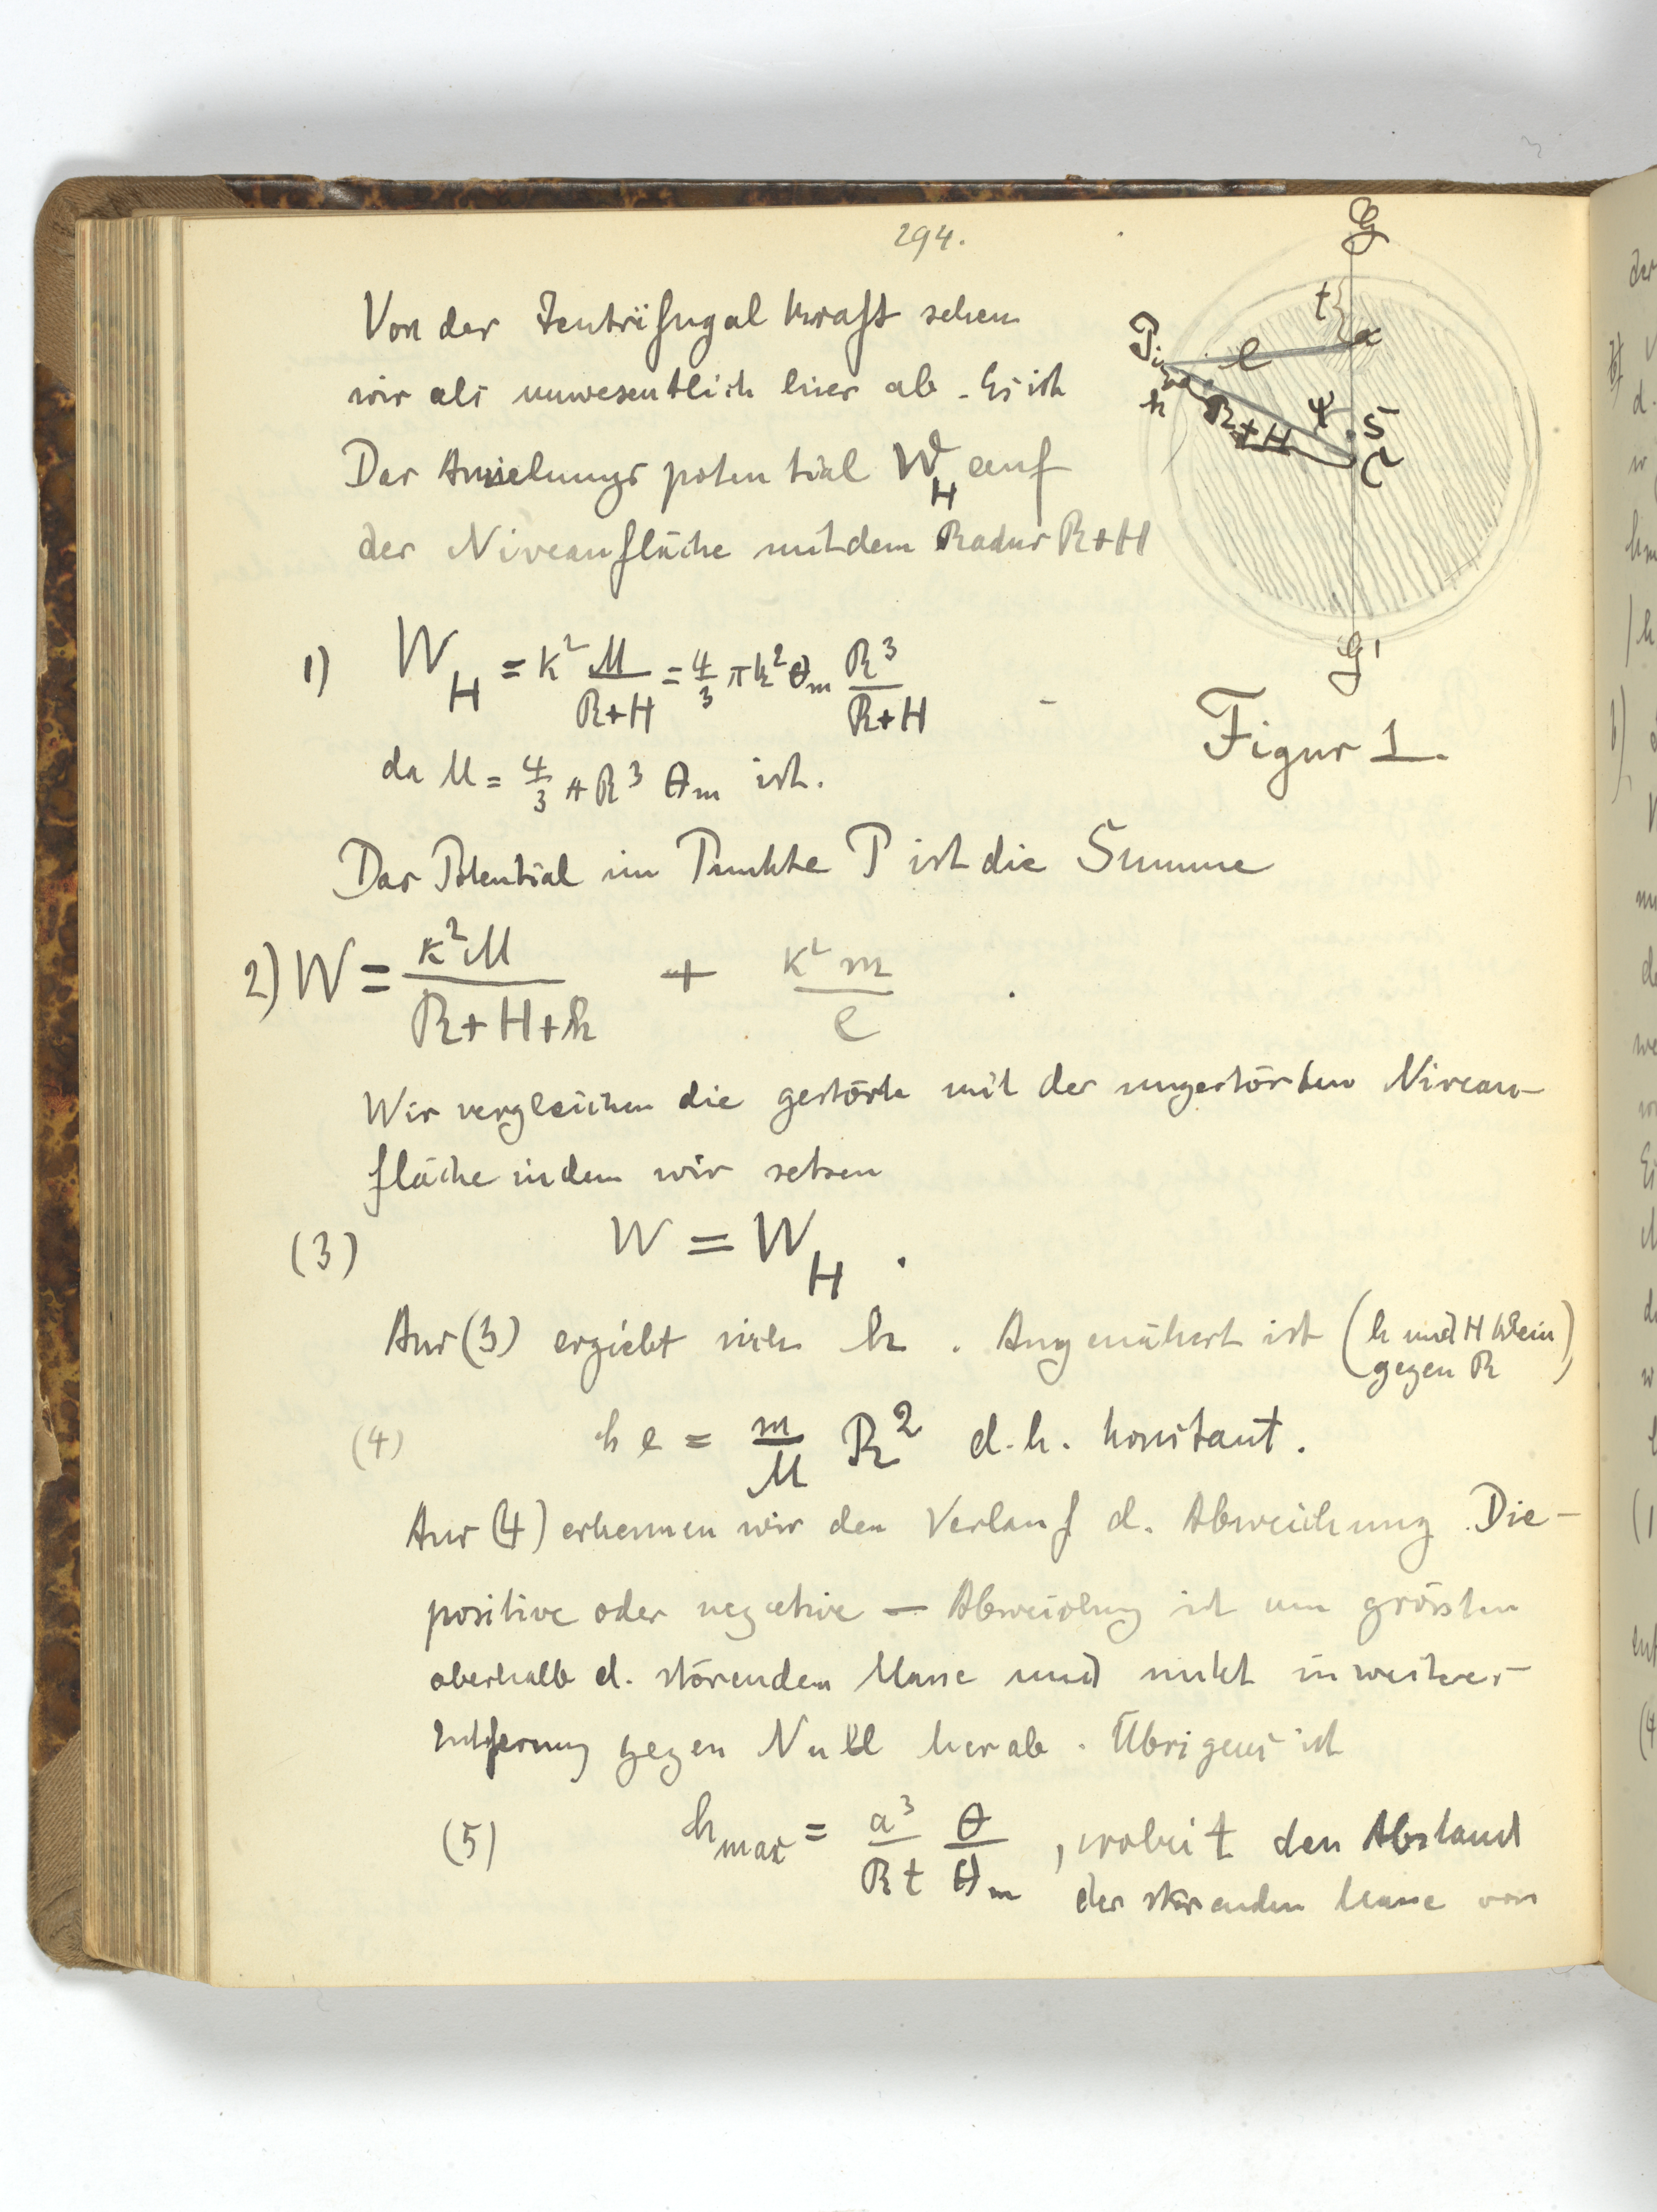 294.
Von der Zentrifugalkraft sehen
wir als unwesentlich hier ab. Es ist
Das Anziehungspotential W_H auf
der Niveaufläche mit dem Radius R+H
1) W_H = k² M/(R+H) = 4/3 π k² θ_m R³/(R+H)
da M = 4/3 π R³ θ_m ist.
G
t
P
e
h
R+H
ψ
S
C
G'
Figur 1.
Das Potential im Punkte P ist die Summe
2) W = k²M/(R+H+h) + k²m/e
Wir vergleichen die gestörte mit der ungestörten Niveau-
fläche indem wir setzen
(3) W = W_H .
Aus (3) ergiebt sich h . Angenähert ist (h und H klein
gegen R)
(4) h e = m/M R² d.h. konstant.
Aus (4) erkennen wir den Verlauf d. Abweichung. Die -
positive oder negative — Abweichung ist am grössten
oberhalb d. störenden Masse und sinkt in weiter
Entfernung gegen Null herab. Übrigens ist
(5) h_max = a³/(R t) θ/θ_m , wobei t den Abstand
der störenden Masse von